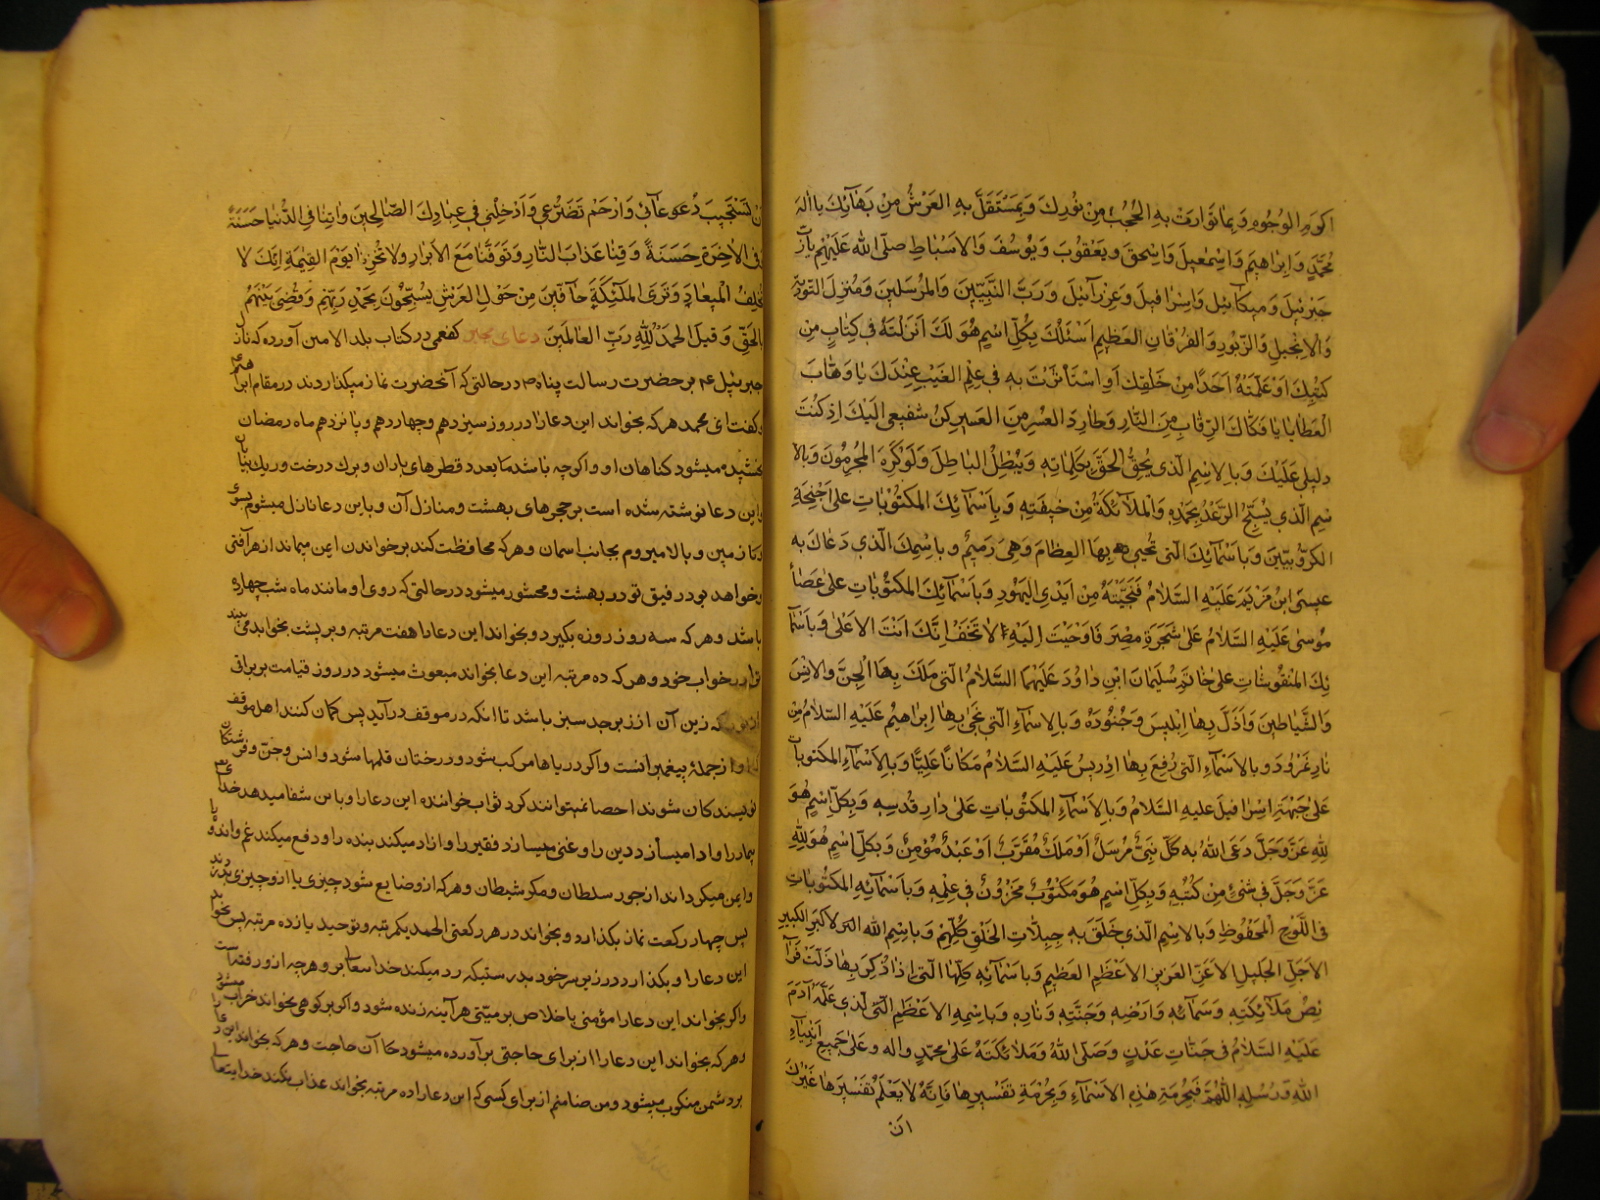 اكرم الوجوه وبما توارت به الحجب من نورك وبما استقل به العرش من بهائك يا اله
محمد وابراهيم واسمعيل واسحق ويعقوب ويوسف والاسباط صلى الله عليهم يا رب
جبرئيل وميكائيل واسرافيل وعزرائيل ورب النبيين والمرسلين ومنزل التورية
والانجيل والزبور والفرقان العظيم اسئلك بكل اسم هو لك انزلته في كتاب من
كتبك او علمته احدا من خلقك او استاثرت به في علم الغيب عندك يا وهاب
العطايا يا فكاك الرقاب من النار وطارد العسر من العسير كن شفيعي اليك اذ كنت
دليلي عليك وبالاسم الذي يحق الحق بكلماته ويبطل الباطل ولو كره المجرمون وبالا
سم الذي يسبح الرعد بحمده والملائكة من خيفته وباسمائك المكتوبات على اجنحة
الكروبيين وباسمائك التي تحيي بها العظام وهي رميم وباسمك الذي دعاك به
عيسى ابن مريم عليه السلام فنجيته من ايدي اليهود وباسمائك المكتوبات على عصا
موسى عليه السلام على شجرة مصر فاوحيت اليه لا تخف انك انت الاعلى وباسما
ئك المنقوشات على خاتم سليمان ابن داود عليهما السلام التي ملك بها الجن والانس
والشياطين واذل بها ابليس وجنوده وبالاسماء التي نجى بها ابراهيم عليه السلام من
نار نمرود وبالاسماء التي رفع بها ادريس عليه السلام مكانا عليا وبالاسماء المكتوبات
على جبهة اسرافيل عليه السلام وبالاسماء المكتوبات على دار قدسه وبكل اسم هو
لله عز وجل دعى الله به كل نبي مرسل او ملك مقرب او عبد مؤمن وبكل اسم هو لله
عز وجل في شئ من كتبه وبكل اسم هو مكتوب مخزون في علمه وباسمائه المكتوبات
في اللوح المحفوظ وبالاسم الذي خلق به جبلات الخلق كلهم وباسم الله الاكبر الكبير
الاجل الجليل الاعز العزيز الاعظم العظيم وباسمائه كلها التي اذا ذكر بها ذلت فرا
ئص ملائكته وسمائه وارضه وجنته وناره وباسمه الاعظم الذي علمه آدم
عليه السلام في جنات عدن وصلى الله وملائكته على محمد واله وعلى جميع انبياء
الله ورسله اللهم فبحرمة هذه الاسماء وبحرمة تفسيرها فانه لا يعلم تفسيرها غيرك
ان
ان تستجيب دعوعائي وارحم تضرعي وادخلني في عبادك الصالحين واتنا في الدنيا حسنة
وفي الاخرة حسنة وقنا عذاب النار وتوفنا مع الابرار ولا تخزنا يوم القيمة انك لا
تخلف الميعاد وترى الملئكة حافين من حول العرش يسبحون بحمد ربهم وقضي بينهم
بالحق وقيل الحمد لله رب العالمين دعاى مجير كفعمى در كتاب بلد الامين آورده كه نازل
جبرئيل ع بر حضرت رسالت پناه ص در حالتى كه آنحضرت نماز ميكذاردند در مقام ابرهيم
وكفت اى محمد هر كه بخواند اين دعا را در روز سيزدهم وچهاردهم وپانزدهم ماه رمضان
بخشيده ميشود كناهان او واكرچه باشد بعدد قطرهاى باران وبرك درخت وريك بيابان
واين دعا نوشته شده است بر حجرهاى بهشت ومنازل آن وباين دعا نازل ميشوم بسوى
زمين وبالا ميروم بجانب اسمان وهر كه محافظت كند بر خواندن ايمن ميماند از هر آفتى
وخواهد بود رفيق تو در بهشت ومحشور ميشود در حالتى كه روى او مانند ماه شب چهارده
باشد وهر كه سه روز روزه بكيرد وبخواند اين دعا را هفت مرتبه وبر پشت بخوابد مى بيند
ترا در خواب خود وهر كه ده مرتبه اين دعا بخواند مبعوث ميشود در روز قيامت بر براقى
از نور كه زين آن از زبرجد سبز باشد تا انكه در موقف درآيد پس كمان كنند اهل موقف
كه او از جملهٔ پيغمبرانست واكر درياها مركب شود ودرختان قلمها شود وانس وجن وفرشتكان
نويسندكان شوند احصا نميتوانند كرد ثواب خواننده اين دعا را وباين شفا ميدهد خداى
بيمار را وادا ميسازد دين را وغنى ميسازد فقير را وازاد ميكند بنده را ودفع ميكند غم واندوه را
وايمن ميكرداند از جور سلطان ومكر شيطان وهر كه از و ضايع شود چيزى يا از و چيزى بدزدند
پس چهار ركعت نماز بكذارد وبخواند در هر ركعتى الحمد يكمرتبه وتوحيد يازده مرتبه پس بخواند
اين دعا را وبكذارد در زير سر خود بدرستيكه رد ميكند خدايتعالى بر و هرچه از و رفته است
واكر بخواند اين دعا را مؤمنى باخلاص بر ميتى هرآينه زنده شود واكر بر كوهى بخواند خراب ميشود
وهر كه بخواند اين دعا را از براى حاجتى برآورده ميشود آن حاجت وهر كه بخواند اين را
بر دشمن منكوب ميشود ومن ضامنم از براى كسى كه اين دعا را ده مرتبه بخواند عذاب نكند خدايتعالى